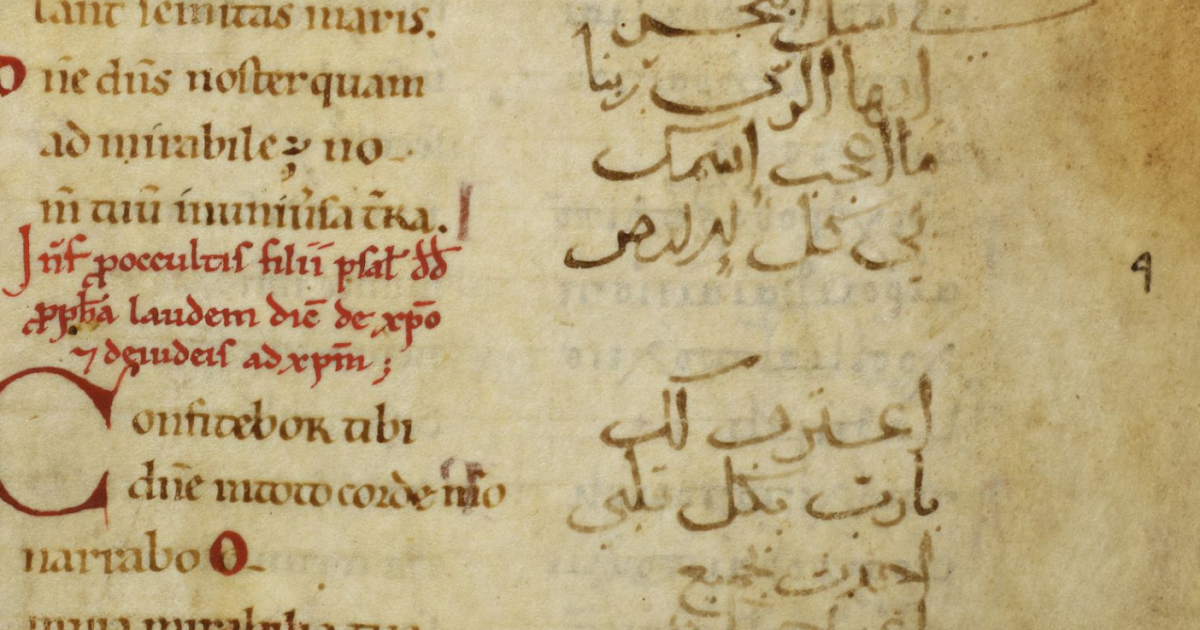 lant semitas maris.
One dn̄s noster quam
admirabile; no
m̄ tuū inuniūsa t̄ra.
Inf̄ p occultis filii psal dd
ppha laudem dic̄ de xpo
⁊ de iudeis ad xpm̄;
Confitebor tibi
dn̄e intoto corde m̄o
narrabo O
mnia mirabilia tua
سبل البحر
ايها الرب ربنا
ما اعجب اسمك
في كل الارض
9
اعترف لك
يارب بكل قلبي
احدث بجميع